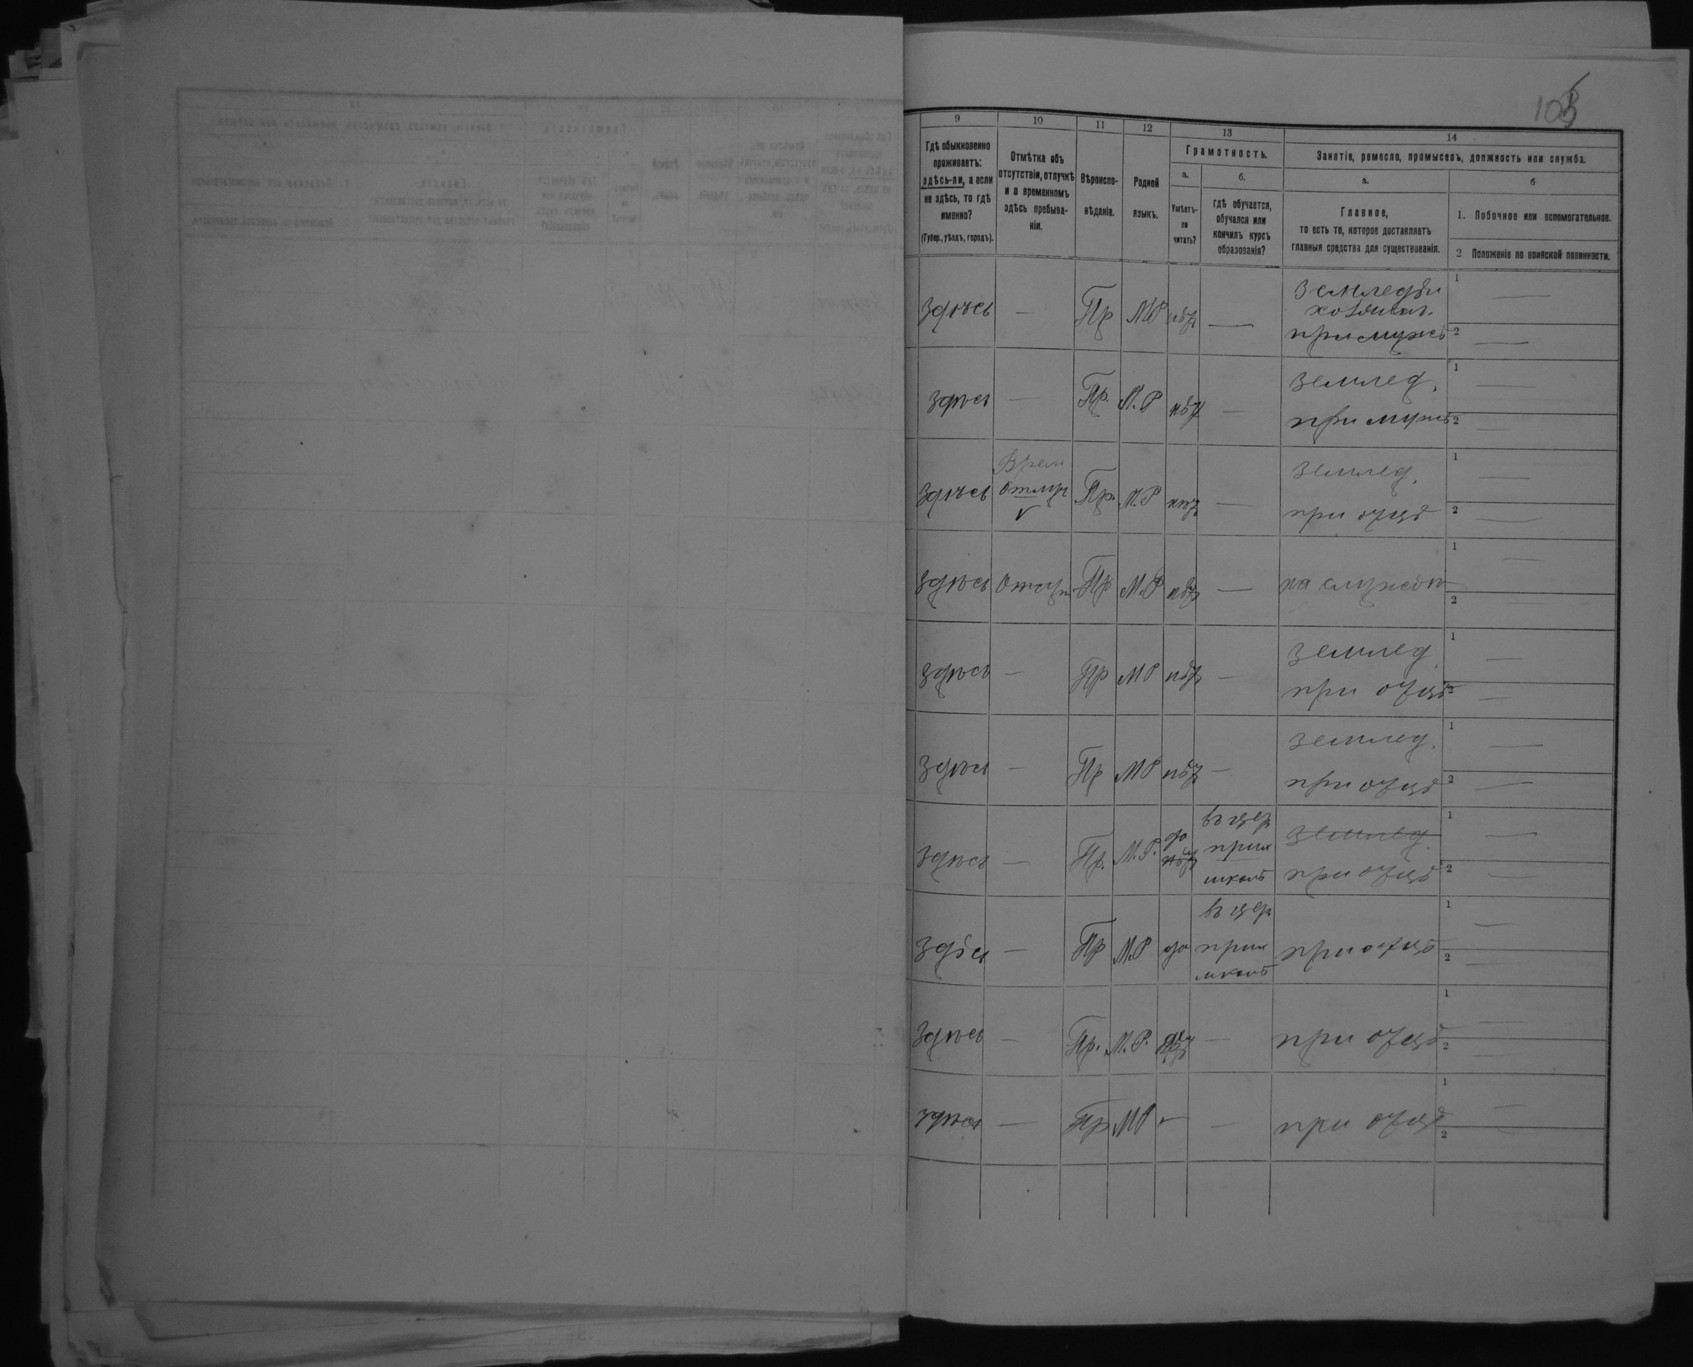 105
9 10 11 12 13 14
Гдѣ обыкновенно
проживаетъ:
здѣсь-ли, а если
не здѣсь, то гдѣ
именно?
(Губер., уѣздъ, городъ).
Отмѣтка объ
отсутствіи, отлучкѣ
и о временномъ
здѣсь пребыва-
ніи.
Вѣроиспо-
вѣданіе.
Родной
языкъ.
Грамотность.
а.
Умѣетъ-
ли
читать?
б.
гдѣ обучается,
обучался или
кончилъ курсъ
образованія?
Занятіе, ремесло, промыселъ, должность или служба.
а.
Главное,
то есть то, которое доставляетъ
главныя средства для существованія.
б
1. Побочное или вспомогательное.
2 Положеніе по воинской повинности.
здѣсь — Пр М.Р нѣт —
при мужѣ
1 —
2 —
здѣсь — Пр. М.Р нѣт —
землед.
при мужѣ
1 —
2 —
здѣсь
Врем
отлуч
Пр. М.Р нѣт —
землед.
при отцѣ
1 —
2 —
здѣсь Отсут. Пр М.Р нѣт — на службѣ
1 —
2 —
здѣсь — Пр МР нѣт —
землед.
при отцѣ
1 —
2 —
здѣсь — Пр МР нѣт —
землед.
при отцѣ
1 —
2 —
здѣсь — Пр. М.Р. да
нѣт
въ цер
прих
школѣ
землед
при отцѣ
1 —
2 —
здѣсь — Пр М.Р да
въ цер
прих
школѣ
при отцѣ
1 —
2 —
здѣсь — Пр. М.Р. — при отцѣ
1 —
2 —
здѣсь — Пр МР — — при отцѣ
1 —
2 —